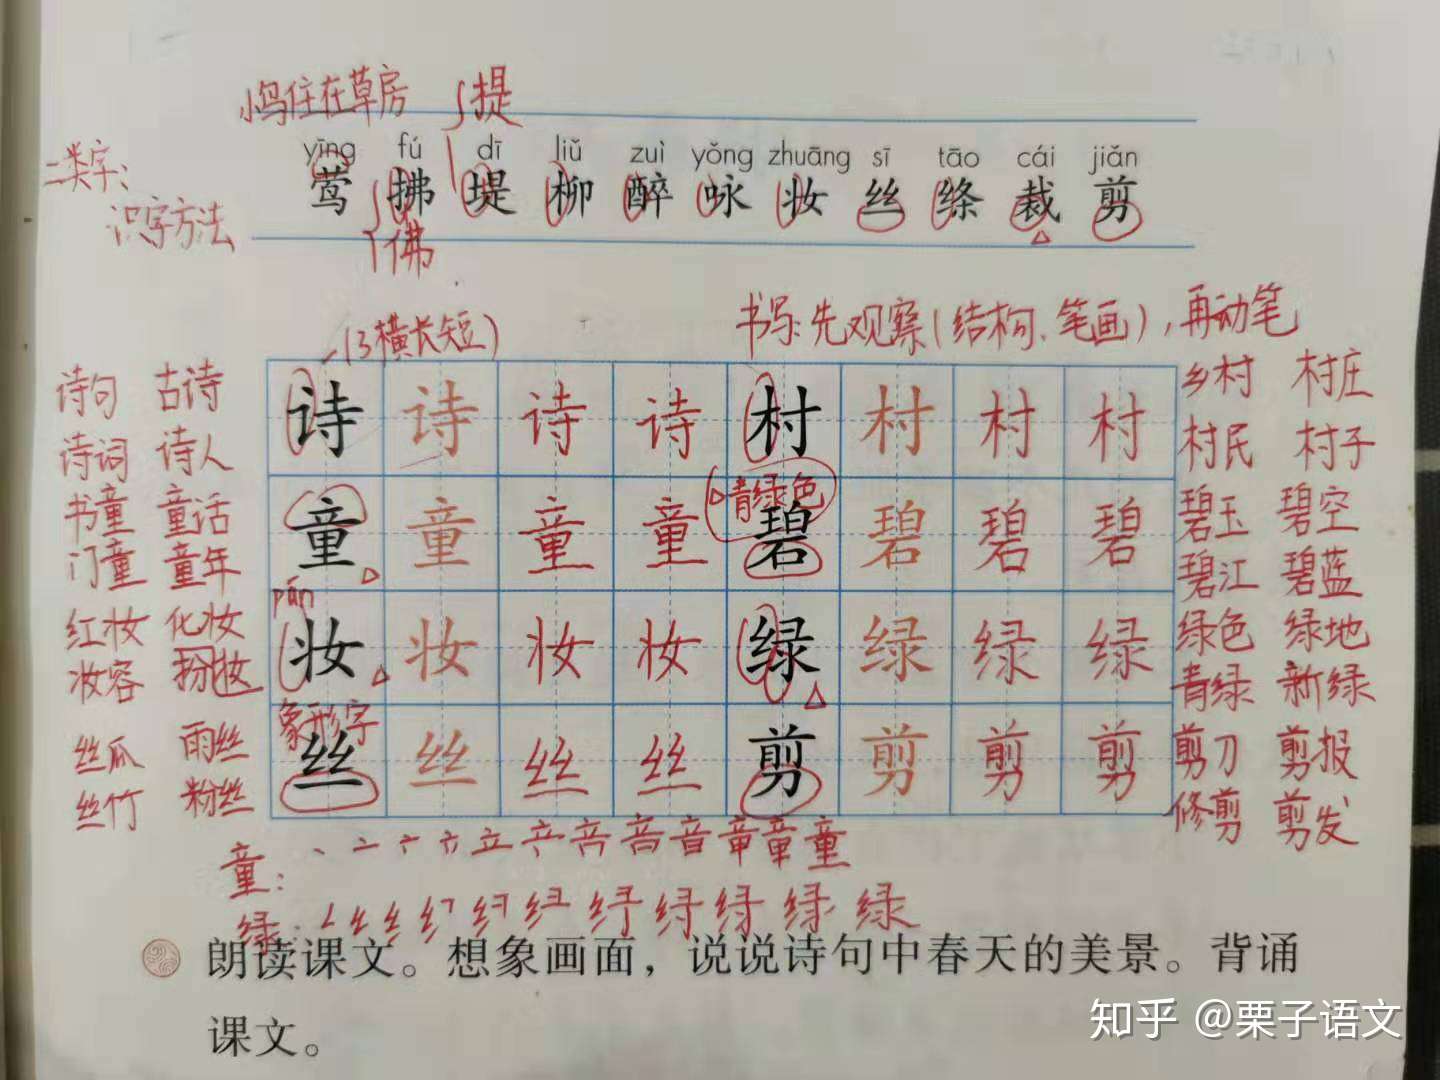 小鸟住在草房 提
yīng fú dī liǔ zuì yǒng zhuāng sī tāo cái jiǎn
二类字：
莺 拂 堤 柳 醉 咏 妆 丝 绦 裁 剪
识字方法
佛
(3横长短) 书写：先观察(结构、笔画)，再动笔
诗句 古诗 诗 诗 诗 诗 村 村 村 村 乡村 村庄
诗词 诗人 村民 村子
青绿色
书童 童话 童 童 童 童 碧 碧 碧 碧 碧玉 碧空
门童 童年 碧江 碧蓝
pán
红妆 化妆 妆 妆 妆 妆 绿 绿 绿 绿 绿色 绿地
妆容 扮妆 青绿 新绿
象形字
丝瓜 雨丝 丝 丝 丝 丝 剪 剪 剪 剪 剪刀 剪报
丝竹 粉丝 修剪 剪发
童：
绿：
朗读课文。想象画面，说说诗句中春天的美景。背诵
课文。
知乎 @栗子语文